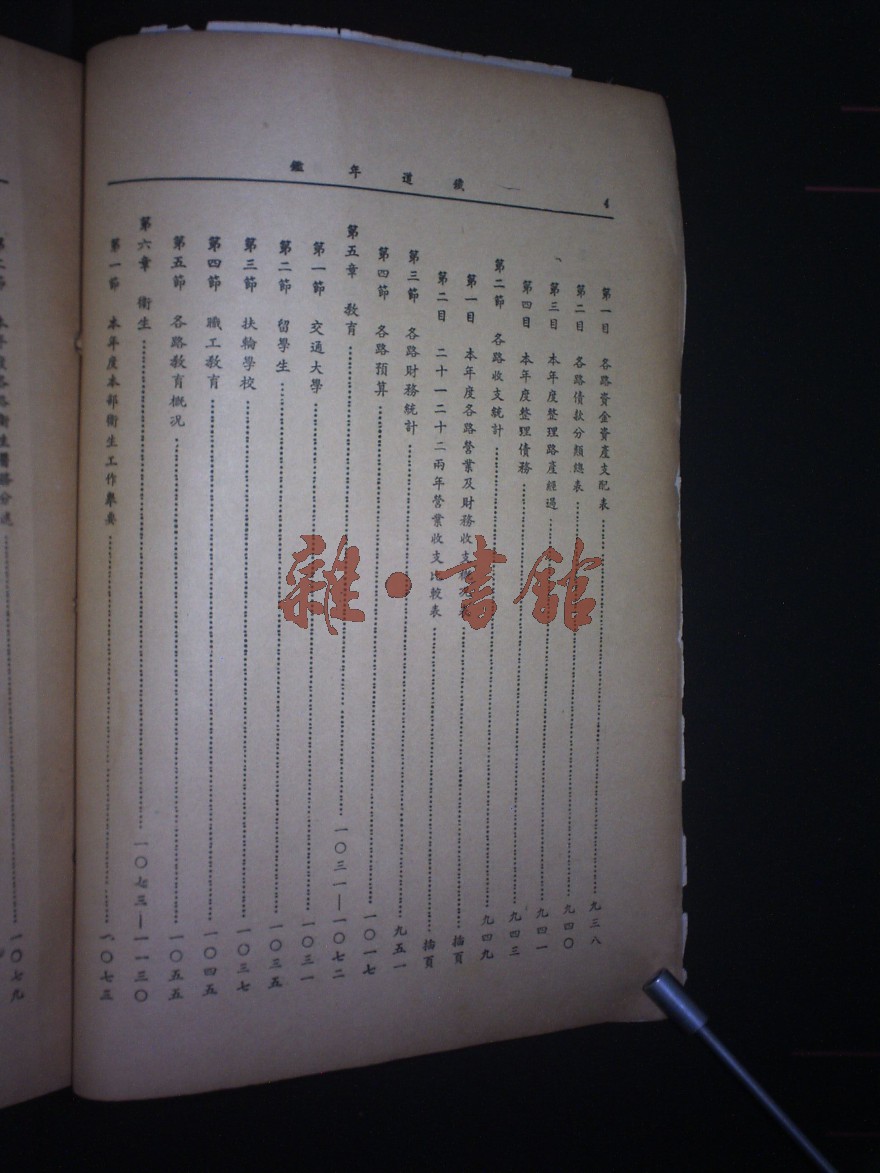 鐵道年鑑
4
第一目 各路資金資產支配表……九三八
第二目 各路債款分類總表……九四〇
第三目 本年度整理路產經過……九四一
第四目 本年度整理債務……九四三
第二節 各路收支統計……九四九
第一目 本年度各路營業及財務收支概况表……插頁
第二目 二十一二十二兩年營業收支比較表……插頁
第三節 各路財務統計……九五一
第四節 各路預算……一〇一七
第五章 教育……一〇三一—一〇七二
第一節 交通大學……一〇三一
第二節 留學生……一〇三五
第三節 扶輪學校……一〇三七
第四節 職工教育……一〇四五
第五節 各路教育概况……一〇五五
第六章 衞生……一〇七三—一一三〇
第一節 本年度本部衞生工作舉要……一〇七三
第二節 本年度各路衞生醫務分述……一〇七九
雜·書館